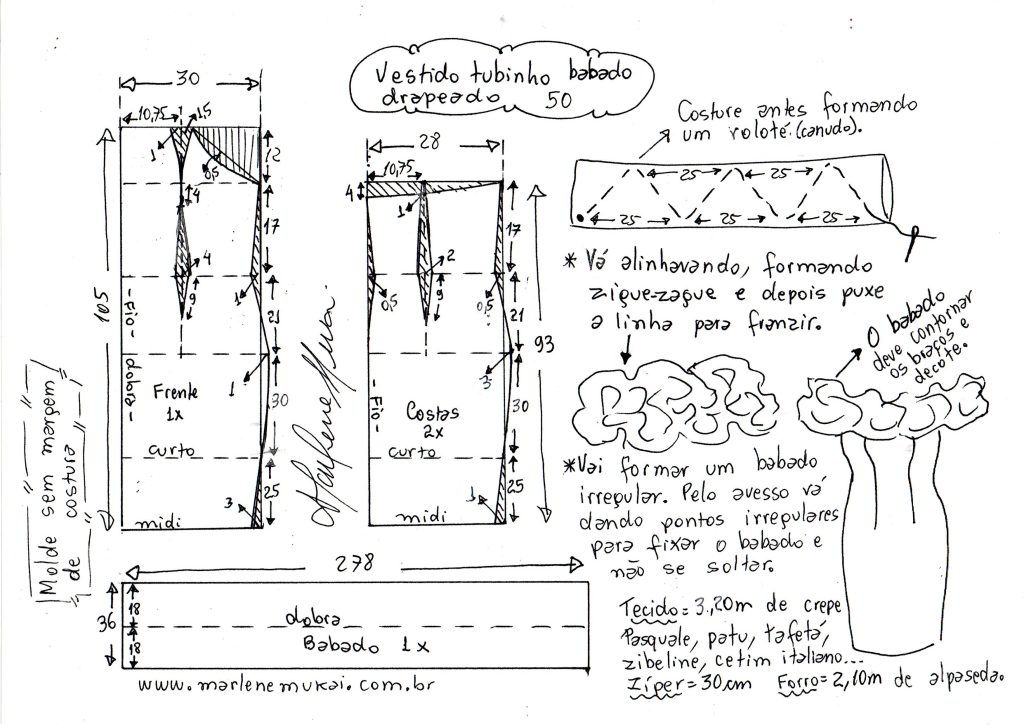 Vestido tubinho babado
drapeado 50
30
10,75
1,5
1
0,5
12
4
17
4
9
1
105
- Fio - dobra -
21
1
Frente
1x
30
curto
3
25
midi
Molde sem margem
de costura
Marlene Mukai
28
10,75
4
1
17
2
9
0,5
0,5
21
93
3
- Fio -
Costas
2x
30
curto
1
25
midi
278
36
18
18
dobra
Babado 1x
www.marlenemukai.com.br
Costure antes formando
um roloté.(canudo).
25
25
25
25
25
* Vá alinhavando, formando
zigue-zague e depois puxe
a linha para franzir.
O babado
deve contornar
os braços e
decote.
*Vai formar um babado
irregular. Pelo avesso vá
dando pontos irregulares
para fixar o babado e
não se soltar.
Tecido = 3,20m de crepe
Pasquale, patu, tafetá,
zibeline, cetim italiano...
Zíper = 30cm Forro = 2,10m de alpaseda.